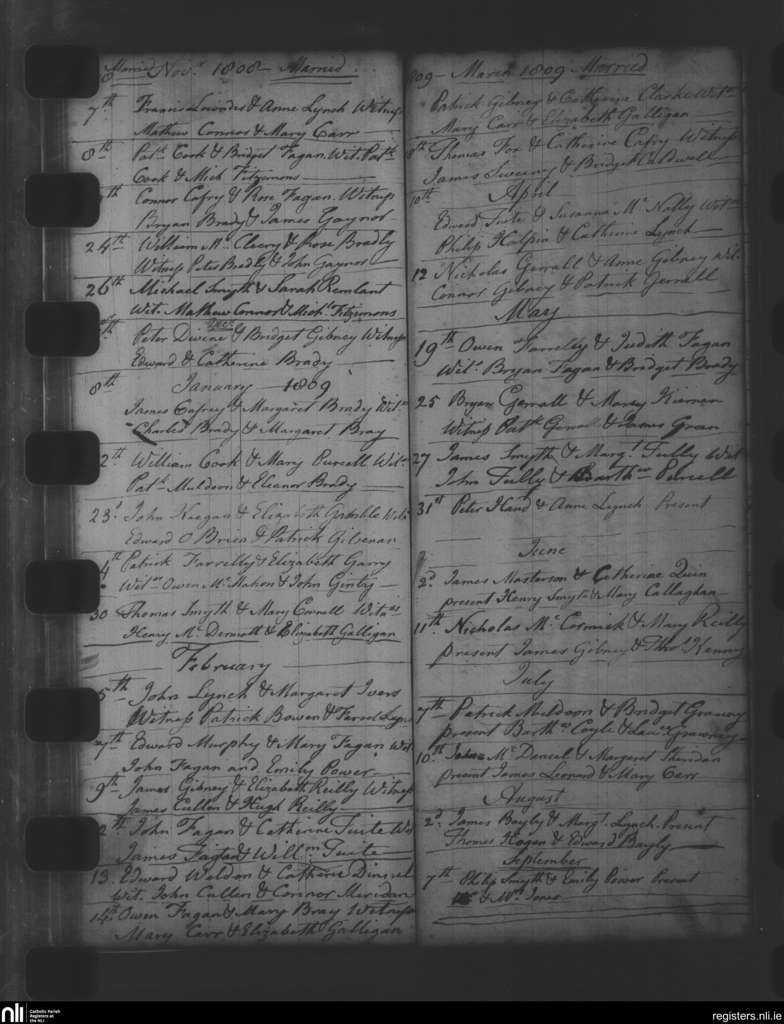 Married Nov.r 1808 Married
7th Francis Lowndes & Anne Lynch Witness
Mathew Connor & Mary Carr
8th Patk Cook & Bridget Fagan. Wit. Patk
Cook & Mich Fitzimons
th Connor Cafry & Rose Fagan. Witness
Bryan Brady & James Gaynor
24th William Mc Cleery & Rose Bradly
Witness Peter Bradly & John Gaynor
26th Michael Smyth & Sarah Remlant
Wit. Mathew Connor & Michl Fitzimons
Decr
th Peter Divine & Bridget Gibney Witness
Edward & Catherine Brady
January 1809
8th James Cafrey & Margaret Brady Wit
Charles Brady & Margaret Bray
2th William Cook & Mary Purcell Wit
Patk Muldoon & Eleanor Brady
23d John Keegan & Elizabeth Wit
Edward O Brien & Patrick Gilsenan
4th Patrick Farrelly & Elizabeth Garry
Wit Owen Mc Mahon & John Ginty
30 Thomas Smyth & Mary Connell Wit
Henry Mc Dermott & Elizabeth Galligan
February
5th John Lynch & Margaret Ivers
Witness Patrick Bowen & Farrel Lynch
7th Edward Murphy & Mary Fagan Wit
John Fagan and Emily Power
9th James Gibney & Elizabeth Reilly Witness
James Cullen & Hugh Reilly
2th John Fagan & Catherine Tuite Wit
James & Willm Tuite
13 Edward Weldon & Catharine
Wit. John Cullen & Connor Meridan
14th Owen Fagan & Mary Bray Witness
Mary Carr & Elizabeth Galligan
09 March 1809 Married
Patrick Gibney & Catherine Clarke Wit
Mary Carr & Elizabeth Galligan
8th Thomas Fox & Catherine Cafry Witness
James Sweeny & Bridget Caldwell
April
10th Edward Tuite & Susanna Mc Nally Wit
Philip Halpin & Catherine Lynch
12 Nicholas Gerrall & Anne Gibney Wit
Connor Gibney & Patrick Gerrall
May
19th Owen Farreley & Judeth Fagan
Wit. Bryan Fagan & Bridget Brady
25 Bryan Gerrall & Mary Kiernan
Witness Patk Gerrall & James Gran
27 James Smyth & Margt Tully Wit
John Tully & Barthw Purcell
31st Peter Hand & Anne Lynch Present
June
2d James Masterson & Catherine Quin
present Henry Smyth & Mary Callaghan
11th Nicholas Mc Cormick & Mary Reilly
present James Gibney & Thos Kenny
July
7th Patrick Muldoon & Bridget
present Barthw Coyle & Lau
10th John Mc Daniel & Margaret Sheridan
present James Leonard & Mary Carr
August
2d James Bayly & Margt Lynch. Present
Thomas Hogan & Edward Bayly
September
7th Philip Smyth & Emily Power Present
& Mrs Jones
nli Catholic Parish
Registers at
the NLI
registers.nli.ie